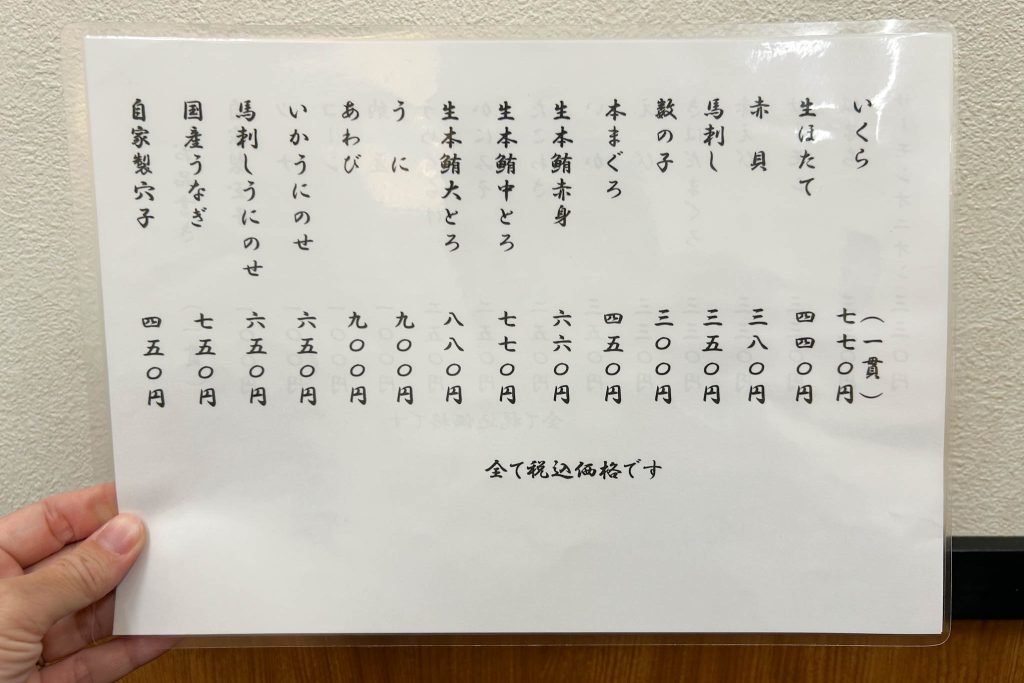 (一貫)
いくら 七七〇円
生ほたて 四四〇円
赤貝 三八〇円
馬刺し 三五〇円
数の子 三〇〇円
本まぐろ 四五〇円
生本鮪赤身 六六〇円
生本鮪中とろ 七七〇円
生本鮪大とろ 八八〇円
うに 九〇〇円
あわび 九〇〇円
いかうにのせ 六五〇円
馬刺しうにのせ 六五〇円
国産うなぎ 七五〇円
自家製穴子 四五〇円
全て税込価格です